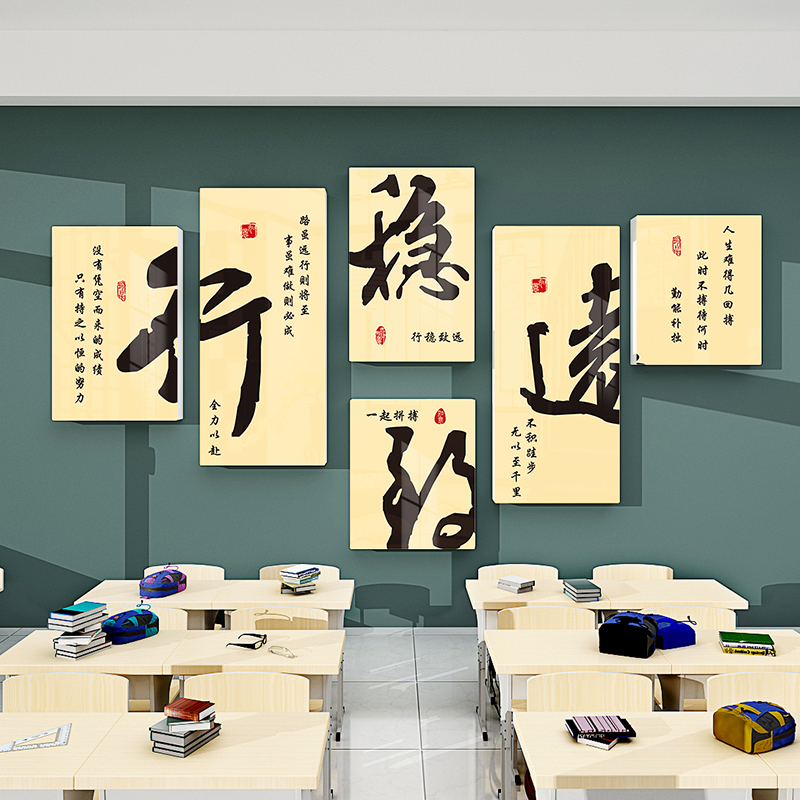 没有凭空而来的成绩
只有持之以恒的努力
行
路虽远行则将至
事虽难做则必成
全力以赴
稳
行稳致远
一起拼搏
致
遠
不积跬步
无以至千里
人生难得几回搏
此时不搏待何时
勤能补拙